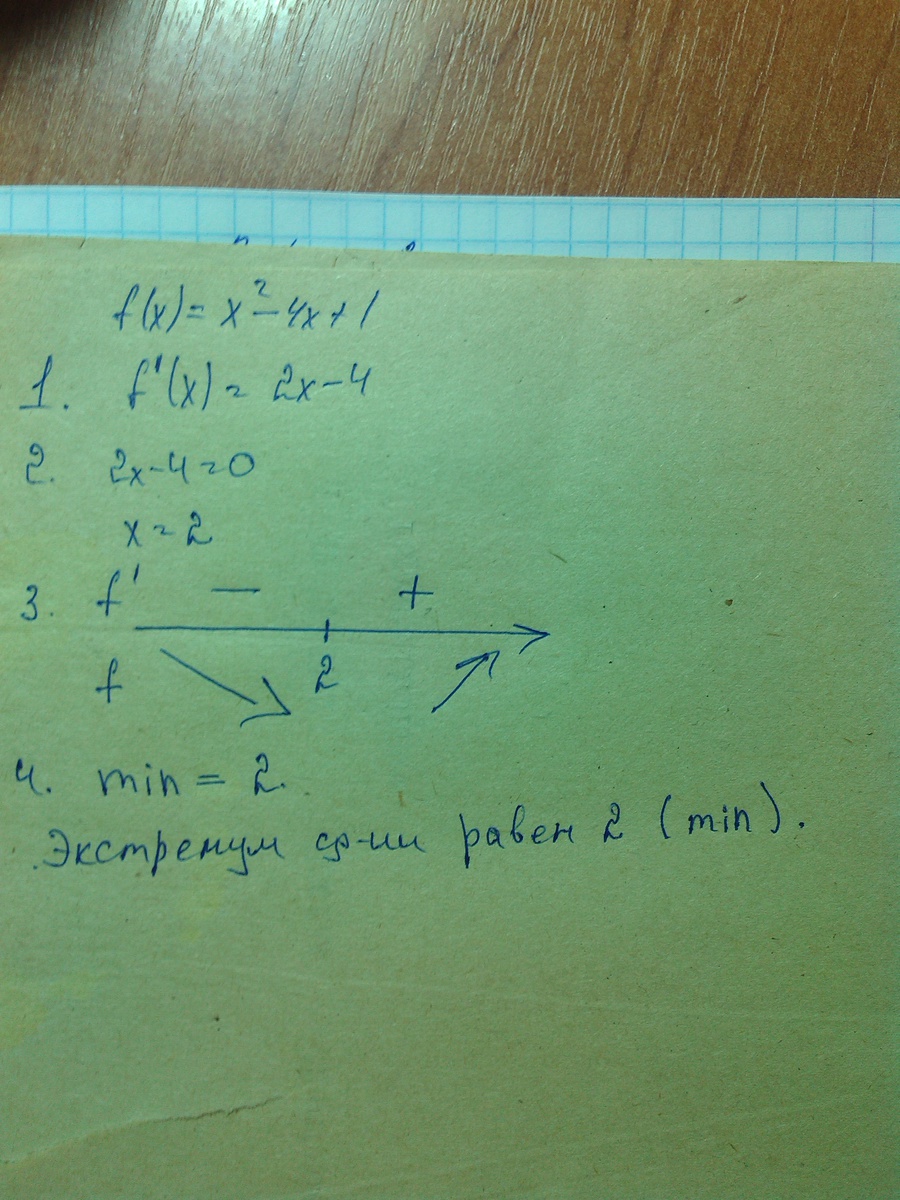 f(x) = x² - 4x + 1
1. f'(x) = 2x - 4
2. 2x - 4 = 0
x = 2
3. f' − +
f 2
4. min = 2.
Экстремум ф-ии равен 2 (min).